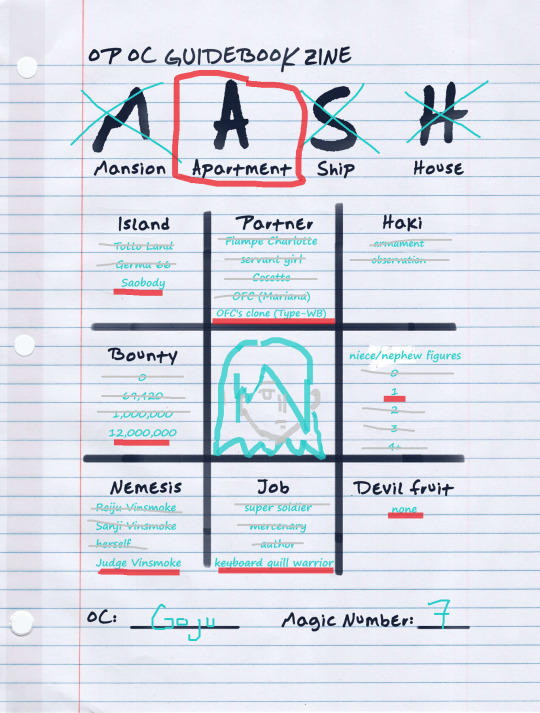 OP OC GUIDEBOOK ZINE
M A S H
Mansion Apartment Ship House
Island
Totto Land
Germa 66
Saobody
Partner
Flampe Charlotte
servant girl
Cosette
OFC (Mariana)
OFC's clone (Type-WB)
Haki
armament
observation
Bounty
0
69,420
1,000,000
12,000,000
niece/nephew figures
0
1
2
3
4+
Nemesis
Reiju Vinsmoke
Sanji Vinsmoke
herself
Judge Vinsmoke
Job
super soldier
mercenary
author
keyboard quill warrior
Devil fruit
none
OC: Goju Magic Number: 7